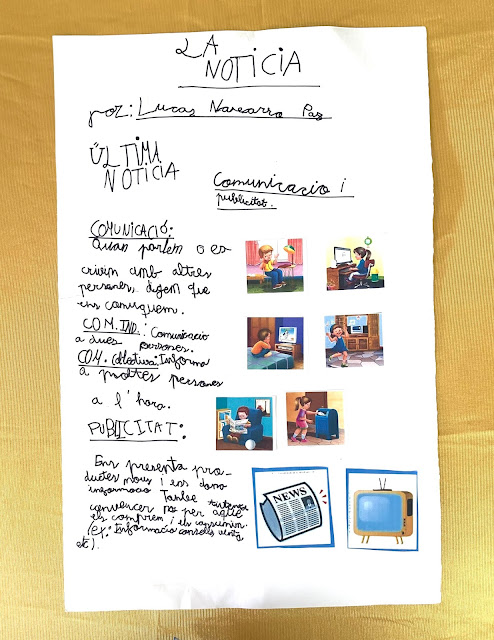 LA
NOTICIA
por: Lucas Navarro Paz
ÚLTIMA
NOTICIA
Comunicacio i
publicitat.
COMUNICACIÓ:
Quan parlem o es
crivim amb altres
persones, digem que
ens comuquem.
COM. IND.: Comunicacio
a dues persones.
COM. Col·lectiva: Informa
a moltes persones
a l'hora.
PUBLICITAT:
Ens presenta pro-
ductes nous i ens dona
informacio Tambe
convencer nos per aque
els comprem i els consumim.
(ex: Informacio consells venta
etc).
NEWS